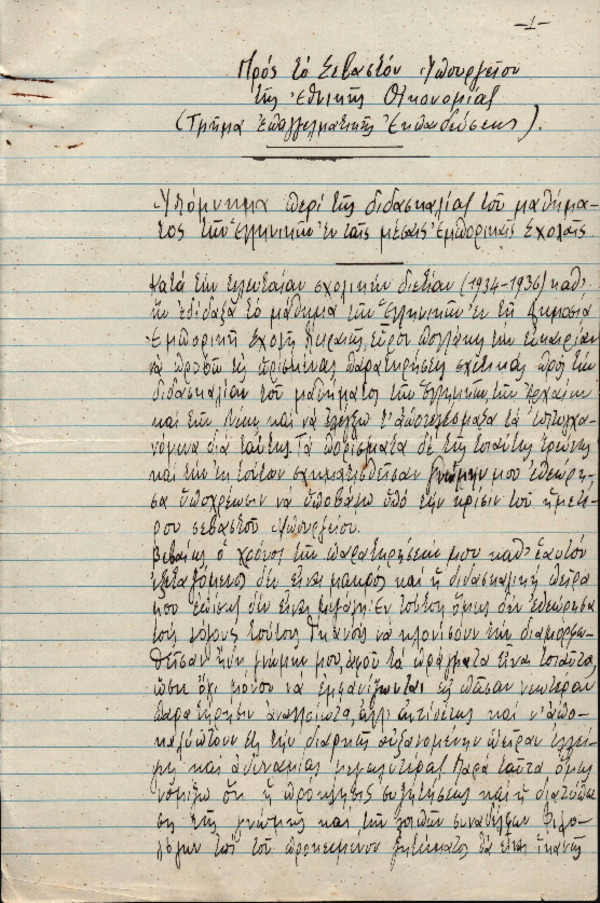 -1-
Πρός τό Σεβαστόν Ὑπουργεῖον
τῆς Ἐθνικῆς Οἰκονομίας
(Τμῆμα Ἐπαγγελματικῆς Ἐκπαιδεύσεως).
Ὑπόμνημα περί τῆς διδασκαλίας τοῦ μαθήμα-
τος τῶν Ἑλληνικῶν ἐν ταῖς μέσαις Ἐμπορικαῖς Σχολαῖς
Κατά τήν τελευταίαν σχολικήν διετίαν (1934-1936) καθ'
ἥν ἐδίδαξα τό μάθημα τῶν Ἑλληνικῶν ἐν τῇ Δημοσίᾳ
Ἐμπορικῇ Σχολῇ εὗρον πολλάκις τήν εὐκαιρίαν
νά προβῶ εἰς ὡρισμένας παρατηρήσεις σχετικάς πρός τήν
διδασκαλίαν τοῦ μαθήματος τῶν Ἑλληνικῶν, τῶν Ἀρχαίων
καί τῶν Νέων, καί νά ἐλέγξω τ' ἀποτελέσματα τά ἐπιτυγχα-
νόμενα διά ταύτης. Τά πορίσματα δέ τῆς τοιαύτης ἐρεύνης
καί τήν ἐκ τούτων σχηματισθεῖσαν γνώμην μου ἐθεώρη-
σα ὑποχρέωσιν νά ὑποβάλω ὑπό τήν κρίσιν τοῦ ἡμετέ-
ρου σεβαστοῦ Ὑπουργείου.
Βεβαίως ὁ χρόνος τῶν παρατηρήσεών μου καθ' ἑαυτόν
ἐξεταζόμενος δέν εἶναι μακρός καί ἡ διδασκαλική πεῖρά
μου ἐπίσης δέν εἶναι μεγάλη. Ἐν τούτοις ὅμως δέν ἐθεώρησα
τούς λόγους τούτους ἱκανούς νά κλονίσουν τήν διαμορφω-
θεῖσαν γνώμην μου, ἀφοῦ τά πράγματα εἶναι τοιαῦτα,
ὥστε ὄχι μόνον νά ἐμφανίζωνται εἰς πᾶσαν νεωτέραν
παρατήρησιν ἀναλλοίωτα, ἀλλ' ἀντιθέτως καί ν' ἀπο-
καλύπτουν εἰς τήν διαρκῶς αὐξανομένην πεῖραν ἐλλεί-
ψεις καί ἀδυναμίας μεγαλυτέρας. Παρά ταῦτα ὅμως
νομίζω ὅτι ἡ πρόκλησις συζητήσεως καί ἡ διατύπω-
σις τῆς γνώμης καί τῶν λοιπῶν συναδέλφων Φιλο-
λόγων ἐπί τοῦ προκειμένου ζητήματος θά εἶναι ἱκανῶς